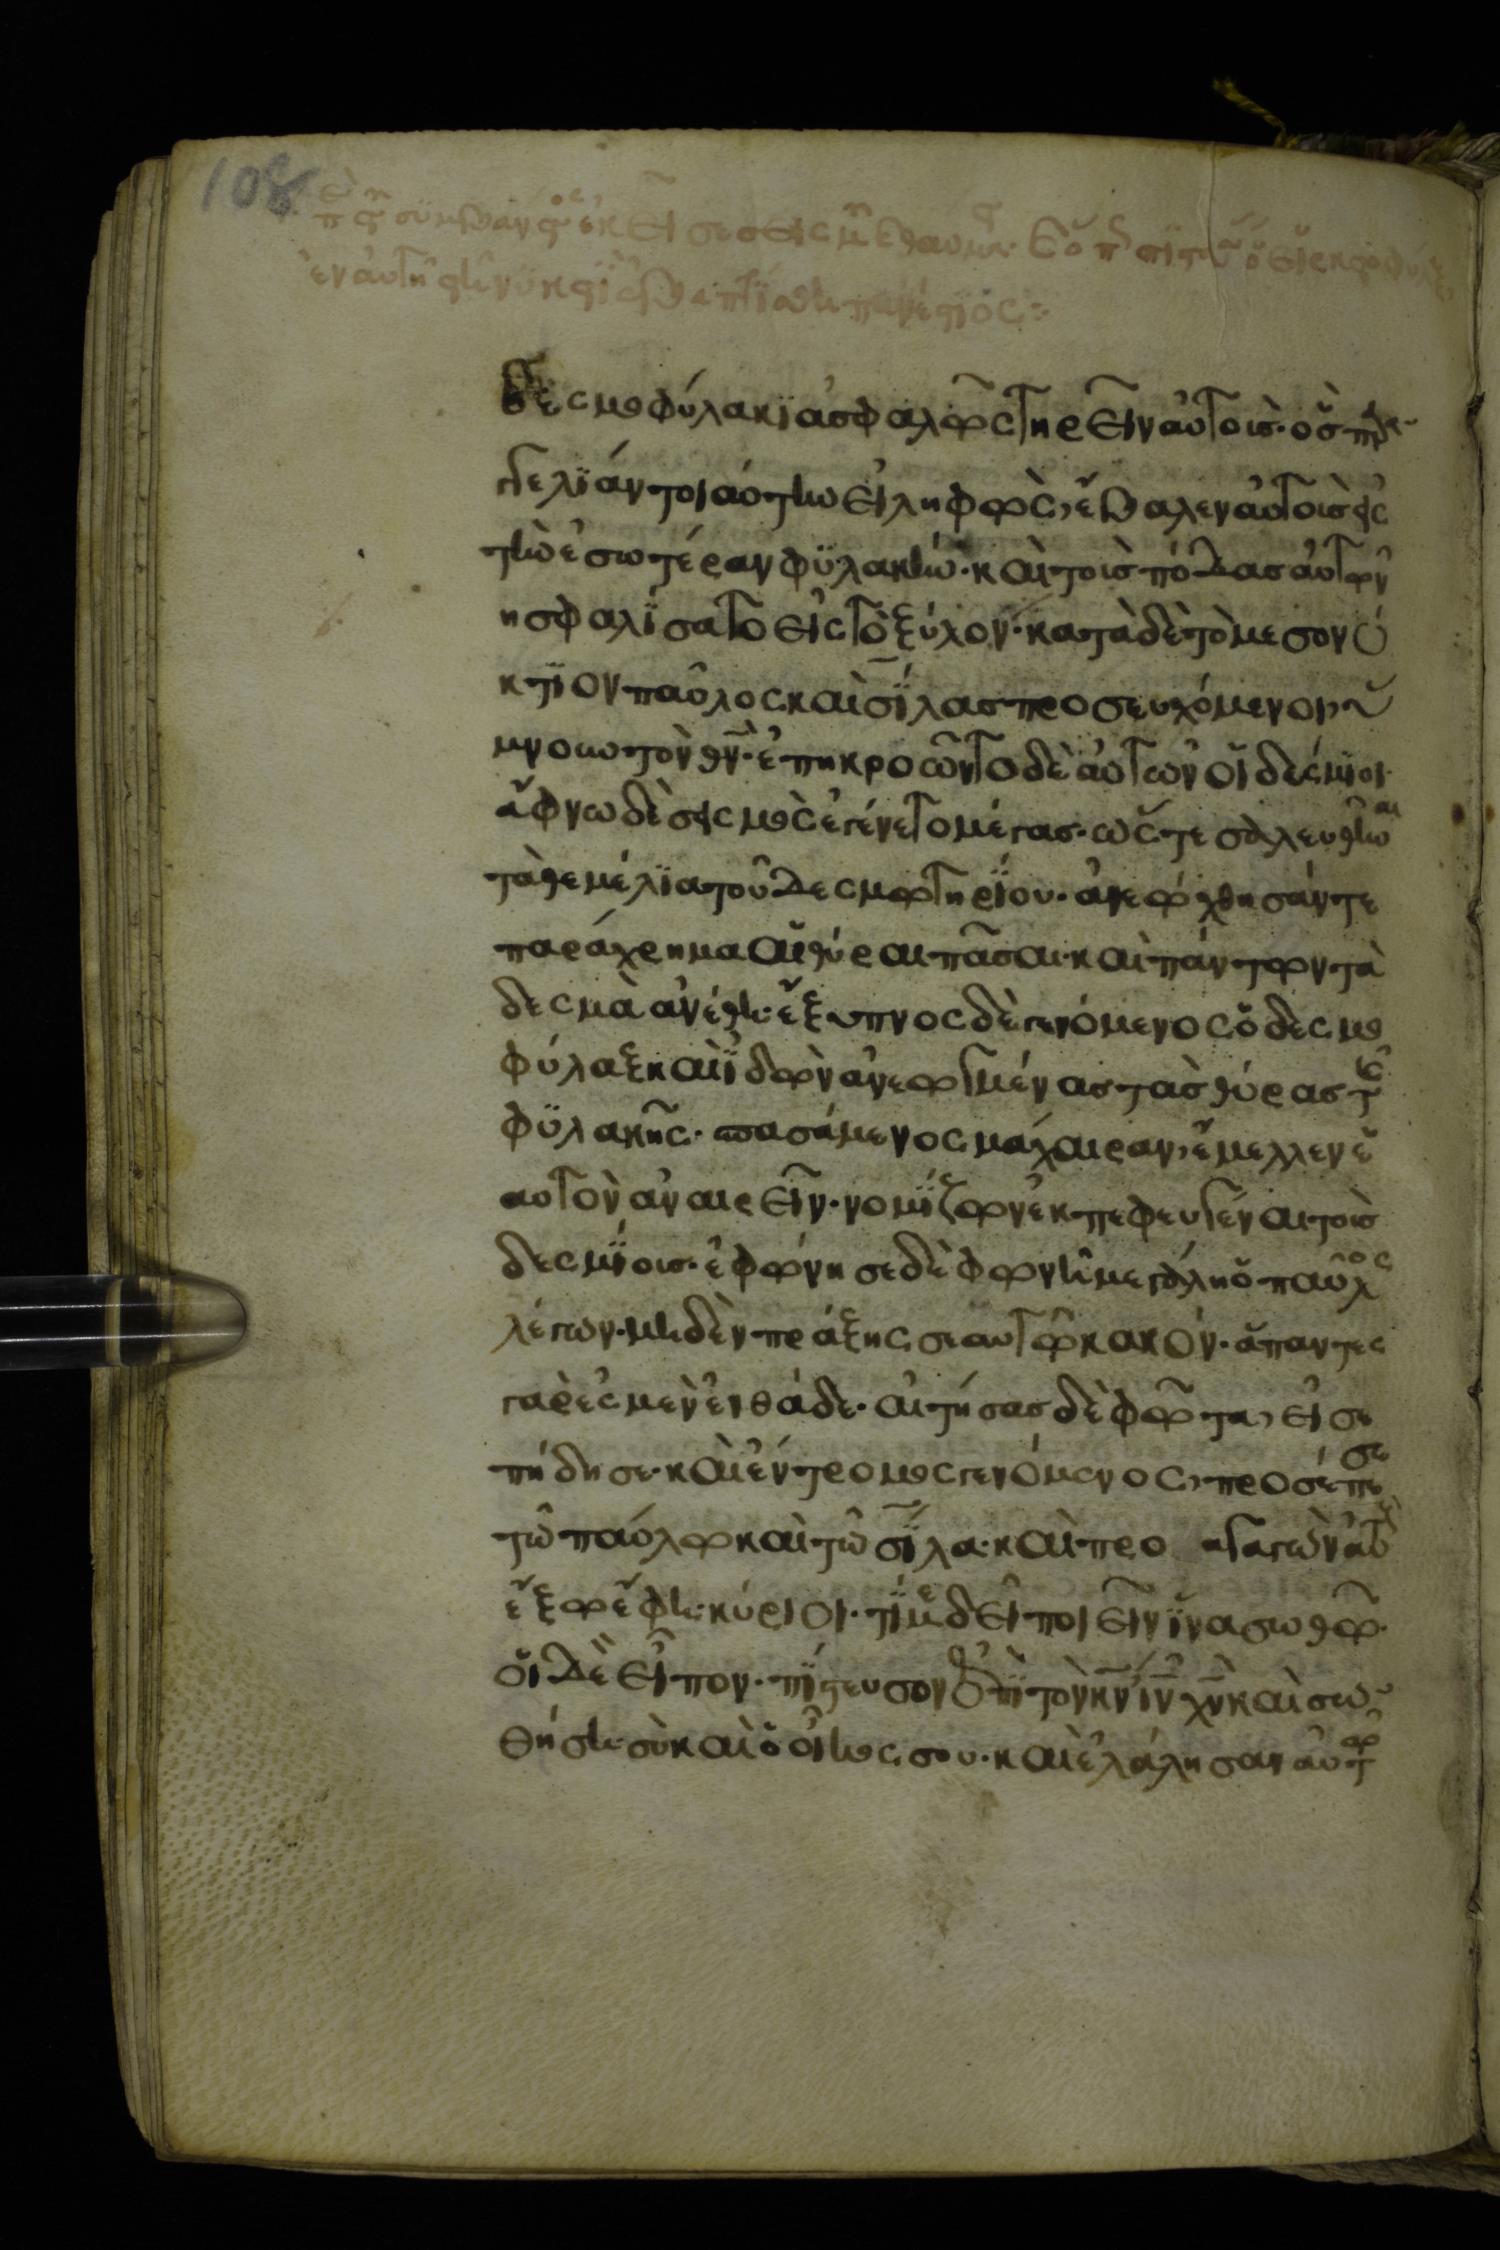 108
δεσμοφύλακι ἀσφαλῶς τηρεῖν αὐτοὺς· ὃς παρα
γγελίαν τοιαύτην εἰληφὼς, ἔβαλεν αὐτοὺς εἰς
τὴν ἐσωτέραν φϋλακὴν· καὶ τοὺς πόδας αὐτῶν
ησφαλίσατο εἰς τὸ ξύλον· κατὰ δὲ τὸ μεσονύ
κτϊον παῦλος καὶ σίλας προσευχόμενοι, ὕ
μνουν τὸν θν· ἐπηκροῶντο δὲ αὐτῶν οἱ δέσμϊοι·
ἄφνω δὲ σεισμὸς ἐγένετο μέγας· ὥστε σαλευθῆναι
τὰ θεμέλϊα τοῦ δεσμωτηρΐου· ἀνεῴχθησάν τε
παράχρημα αἱ θύραι πᾶσαι· καὶ πάντων τὰ
δεσμὰ ἀνέθη· ἔξυπνος δὲ γενόμενος ὁ δεσμο
φύλαξ καὶ ϊδὼν ἀνεωγμένας τὰς θύρας τῆς
φϋλακῆς· σπασάμενος μάχαιραν, ἔμελλεν ἑ
αυτὸν ἀναιρεῖν· νομίζων ἐκπεφευγέναι τοὺς
δεσμίους· ἐφώνησε δὲ φωνῆ μεγάλη ὁ παῦλος
λέγων· μηδὲν πράξης σεαυτῶ κακόν· ἅπαντες
γὰρ ἐσμὲν ἐνθάδε· αἰτήσας δὲ φῶτα, εἰσε
πήδησε· καὶ ἔντρομος γενόμενος, προσέπεσε
τῶ παύλω καὶ τῶ σίλα· καὶ προαγαγὼν αὐτοὺς
ἔξω ἔφη· κύριοι· τί με δεῖ ποιεῖν ἵνα σωθῶ·
οἱ δὲ εἶπον· πίστευσον ἐπὶ τὸν κν ιν χν καὶ σω
θήση· σὺ καὶ ὁ οἶκος σου· καὶ ἐλάλησαν αὐτῶ